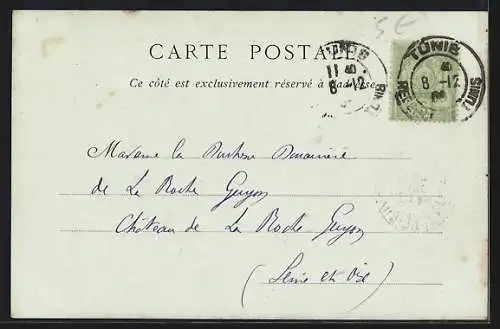 5 E
CARTE POSTALE
TUNIS
TUNIS
Ce côté est exclusivement réservé à l'adresse
8 -12
8 -12
TUNIS
Madame la Duchesse Douairière
de La Roche Guyon
Château de La Roche Guyon
(Seine et Oise)